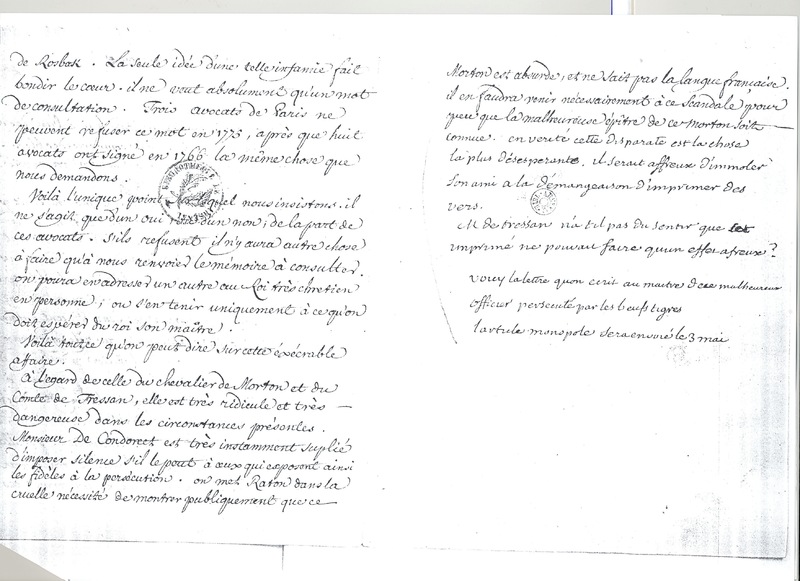 de Rosbak. La seule idée d'une telle infamie fait
bondir le cœur. il ne vout absolument qu'un mot
de consultation. Trois avocats de Paris ne
peuvent refuser ce mot en 1775, après que huit
avocats ont signé en 1766 la même chose que
nous demandons.
Voilà l'unique point lequel nous insistons. il
ne s'agit que d'un oui d'un non, de la part de
ces avocats. s'ils refusent il n'y aura autre chose
à faire qu'à nous renvoier le mémoire à consulter.
on poura en adresser un autre au Roi très chretien
en personne; ou s'en tenir uniquement à ce qu'on
doit espérer du roi son maitre.
Voilà tout ce qu'on peut dire sur cette éxécrable
affaire.
à l'egard de celle du chevalier de Morton et du
Comte de Tressan, elle est très ridicule et très
dangereuse dans les circonstances présentes.
Monsieur De Condorcet est très instamment suplié
d'imposer silence s'il le peut à ceux qui exposent ainsi
les fidèles à la persécution. on met Raton dans la
cruelle nécessité de montrer publiquement que ce
Morton est absurde, et ne sait pas la langue française.
il en faudra venir nécessairement à ce scandale pour
peu que la malheureuse épitre de ce Morton soit
connue. en verité cette disparate est la chose
la plus désesperante, il serait affreux d'immoler
son ami a la démangeaison d'imprimer des
vers.
M. de tressan n'a t'il pas du sentir que
imprimé ne pouvait faire qu'un effet afreux?
voicy la lettre quon ecrit au maitre dece malheureux
officier persecuté par les beufs tigres
larticle monopole sera envoié le 3 mai